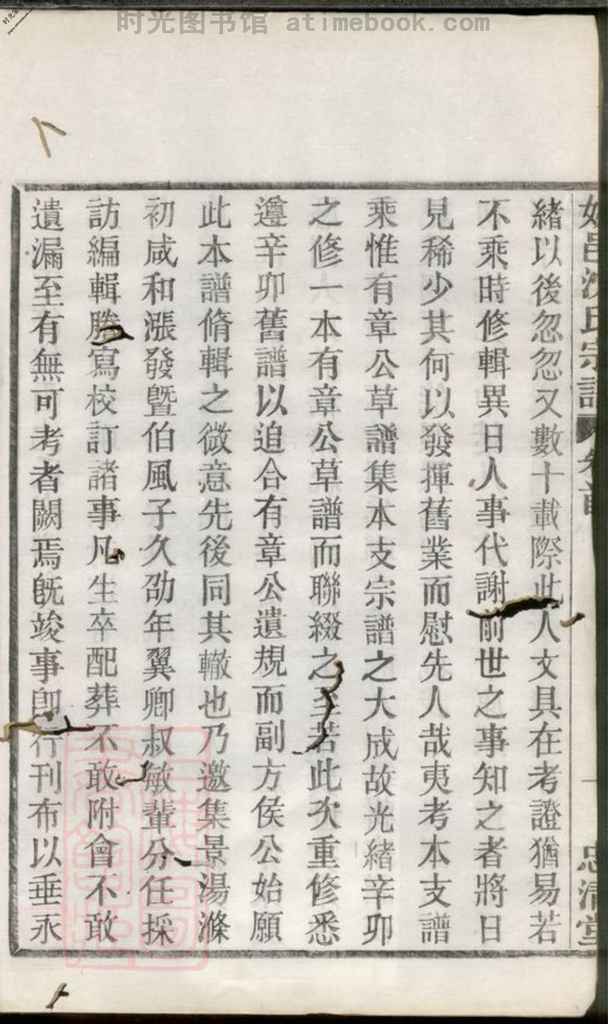 时光图书馆 atimebook.com
氏宗譜 卷首 一 忠清堂
緒以後忽忽又數十載際此人文具在考證猶易若
不乘時修輯異日人事代謝前世之事知之者將日
見稀少其何以發揮舊業而慰先人哉夷考本支譜
乘惟有章公草譜集本支宗譜之大成故光緒辛卯
之修一本有章公草譜而聯綴之至若此次重修悉
遵辛卯舊譜以追合有章公遺規而副方侯公始願
此本譜脩輯之微意先後同其轍也乃邀集景湯滌
初咸和漲發暨伯風子久劭年翼卿叔敏輩分任採
訪編輯謄寫校訂諸事凡生卒配葬不敢附會不敢
遺漏至有無可考者闕焉旣竣事卽行刊布以垂永